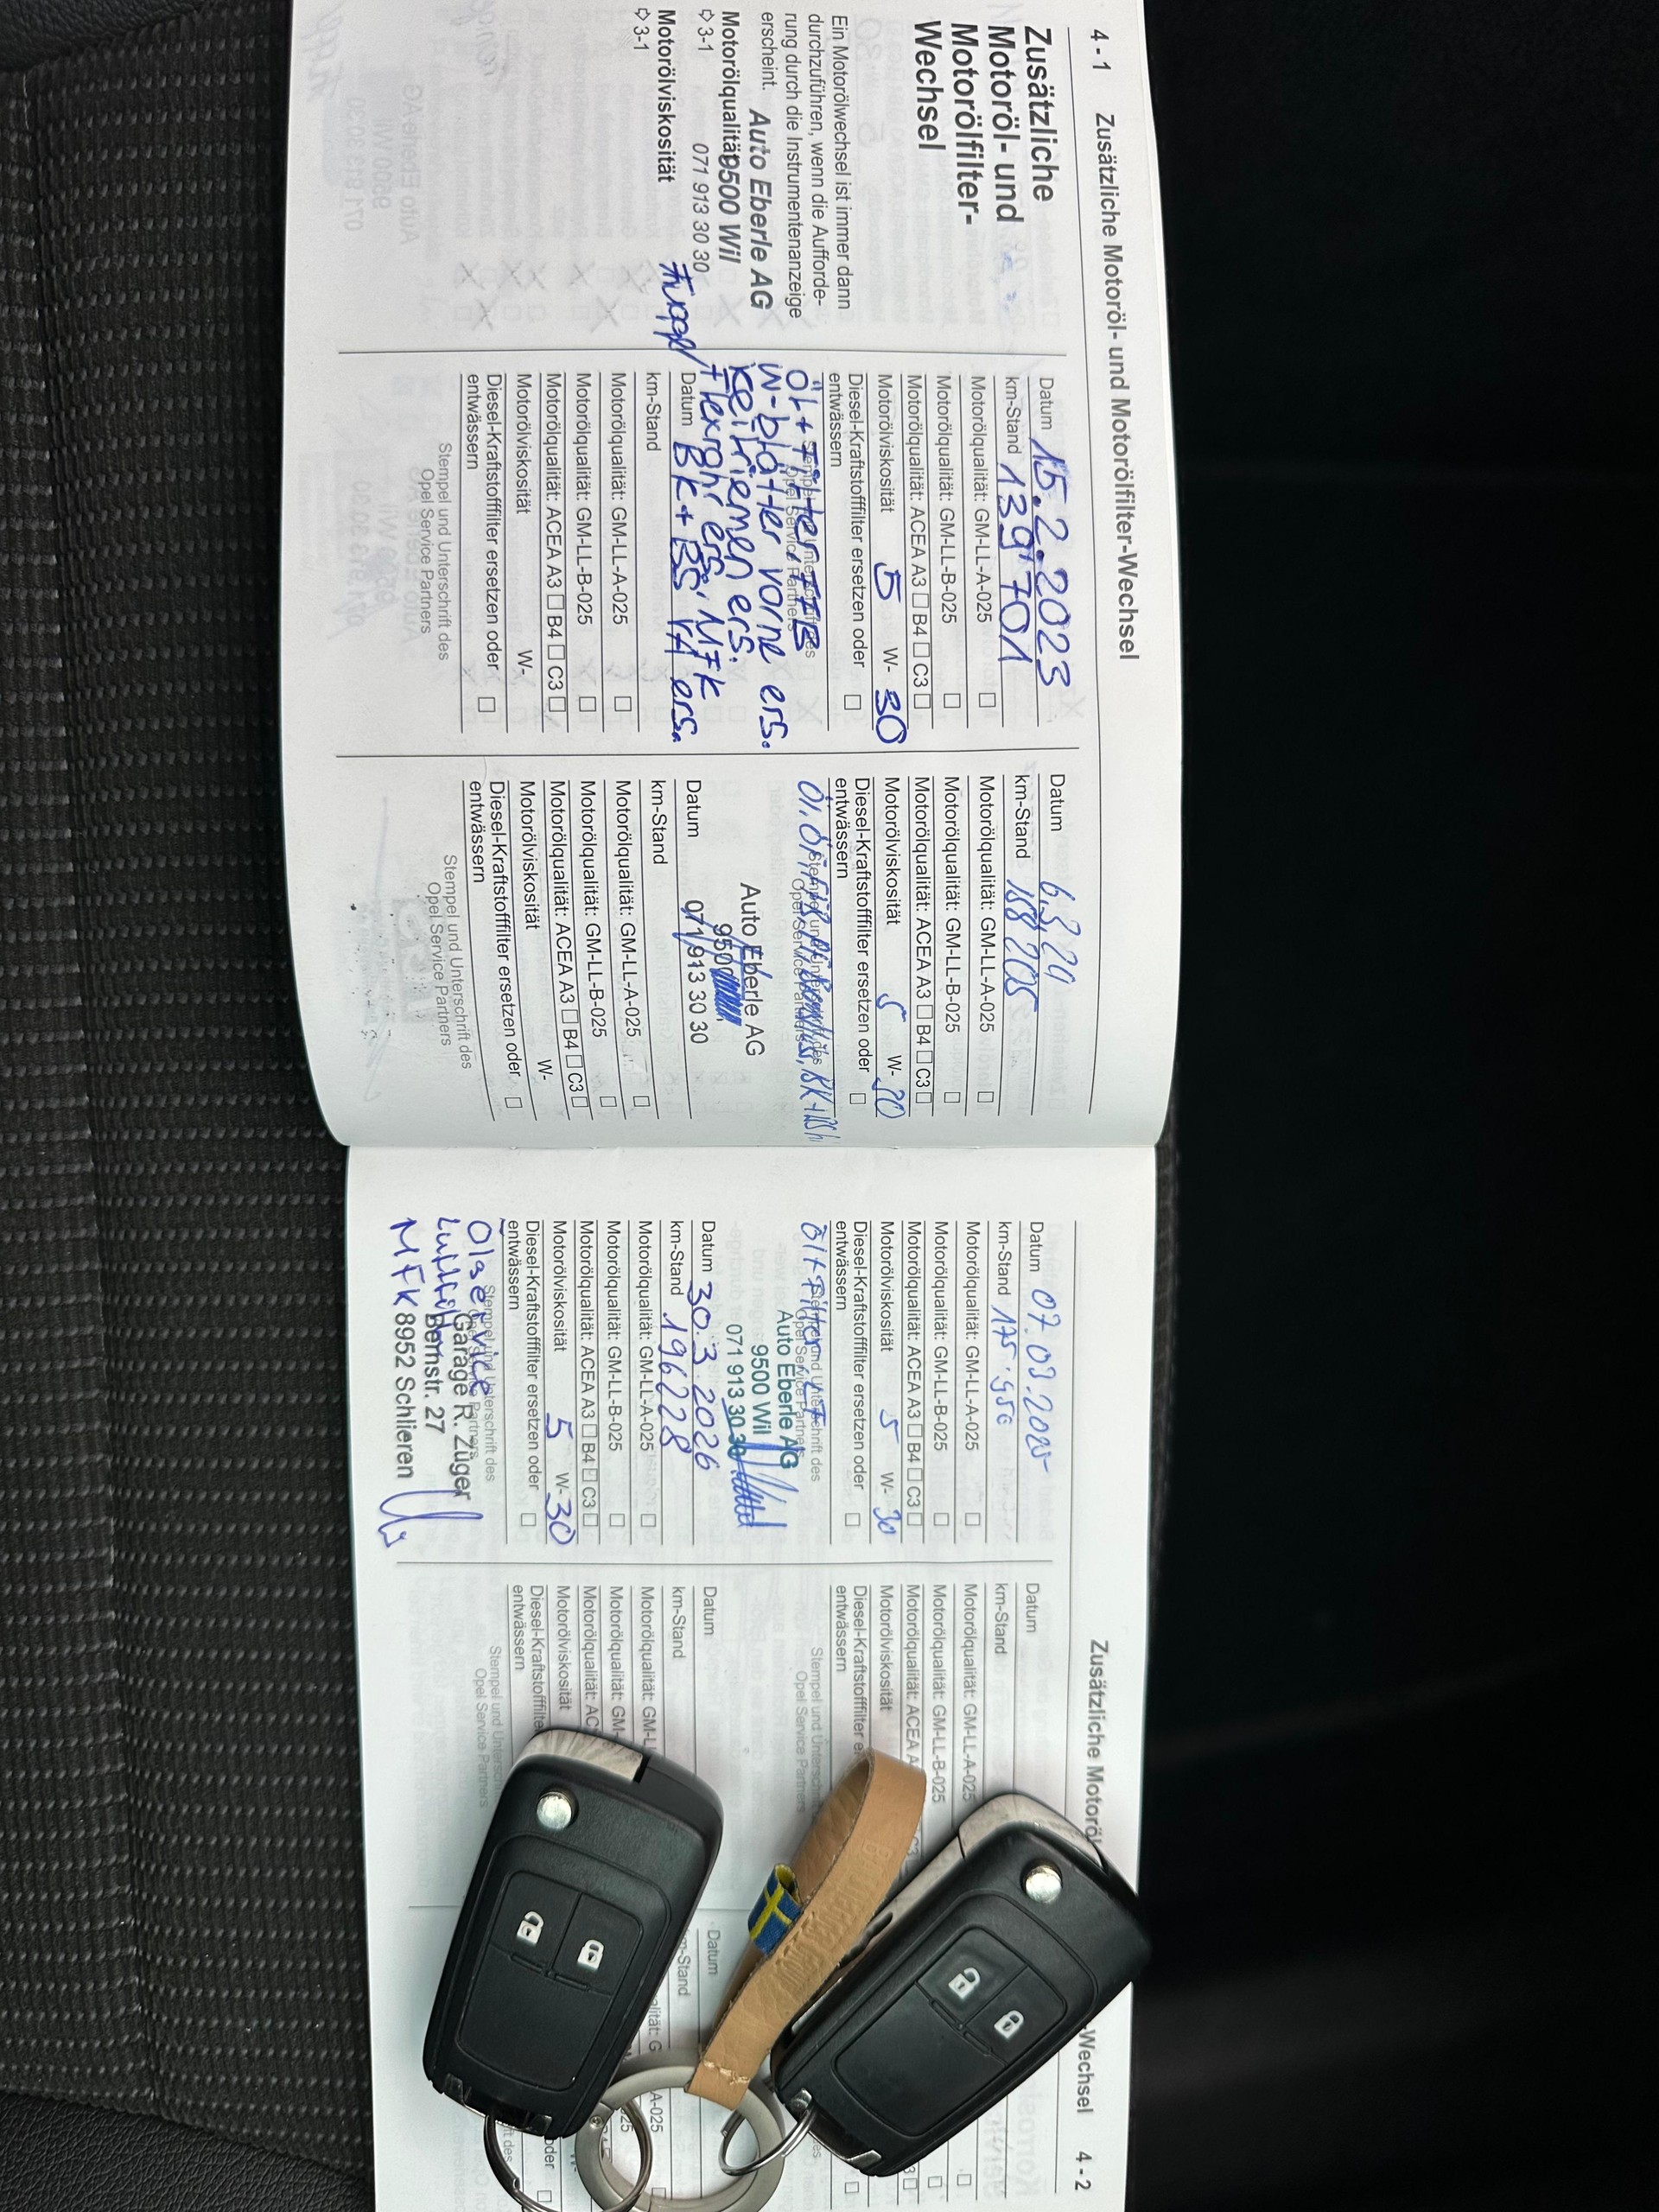 4 - 1 Zusätzliche Motoröl- und Motorölfilter-Wechsel
Zusätzliche
Motoröl- und
Motorölfilter-
Wechsel
Ein Motorölwechsel ist immer dann
durchzuführen, wenn die Aufforde-
rung durch die Instrumentenanzeige
erscheint.
Auto Eberle AG
Motorölqualität
9500 Wil
⇨ 3-1
071 913 30 30
Motorölviskosität
⇨ 3-1
Datum 15.2.2023
km-Stand 139'701
Motorölqualität: GM-LL-A-025
Motorölqualität: GM-LL-B-025
Motorölqualität: ACEA A3 B4 C3
Motorölviskosität 5 W- 30
Diesel-Kraftstofffilter ersetzen oder
entwässern
Stempel und Unterschrift des
Opel Service Partners
Öl + Filter, FFB
W-blätter vorne ers.
Keilriemen ers.
Flexrohr ers, MFK
Datum BK + BS VA ers.
km-Stand
Motorölqualität: GM-LL-A-025
Motorölqualität: GM-LL-B-025
Motorölqualität: ACEA A3 B4 C3
Motorölviskosität W-
Diesel-Kraftstofffilter ersetzen oder
entwässern
Stempel und Unterschrift des
Opel Service Partners
Datum 6.3.24
km-Stand 158'205
Motorölqualität: GM-LL-A-025
Motorölqualität: GM-LL-B-025
Motorölqualität: ACEA A3 B4 C3
Motorölviskosität 5 W- 30
Diesel-Kraftstofffilter ersetzen oder
entwässern
Stempel und Unterschrift des
Opel Service Partners
Auto Eberle AG
950
071 913 30 30
Datum
km-Stand
Motorölqualität: GM-LL-A-025
Motorölqualität: GM-LL-B-025
Motorölqualität: ACEA A3 B4 C3
Motorölviskosität W-
Diesel-Kraftstofffilter ersetzen oder
entwässern
Stempel und Unterschrift des
Opel Service Partners
Zusätzliche Motoröl Wechsel 4 - 2
Datum 07.03.2025
km-Stand 175'950
Motorölqualität: GM-LL-A-025
Motorölqualität: GM-LL-B-025
Motorölqualität: ACEA A3 B4 C3
Motorölviskosität 5 W- 30
Diesel-Kraftstofffilter ersetzen oder
entwässern
Stempel und Unterschrift des
Opel Service Partners
Öl + Filter
Auto Eberle AG
9500 Wil
071 913 30 30
Datum 30.3.2026
km-Stand 196228
Motorölqualität: GM-LL-A-025
Motorölqualität: GM-LL-B-025
Motorölqualität: ACEA A3 B4 C3
Motorölviskosität 5 W- 30
Diesel-Kraftstofffilter ersetzen oder
entwässern
Stempel und Unterschrift des
Opel Service Partners
Ölservice
Garage R. Züger
Bernstr. 27
MFK 8952 Schlieren
Datum
km-Stand
Motorölqualität: GM-LL-A-025
Motorölqualität: GM-LL-B-025
Motorölqualität: ACEA A
Motorölviskosität
Diesel-Kraftstofffilter e
entwässern
Stempel und Unterschri
Opel Service Partners
Datum
km-Stand
Motorölqualität: GM-L
Motorölqualität: GM-
Motorölqualität: AC
Motorölviskosität
Diesel-Kraftstofffilte
entwässern
Stempel und Unters
Opel Service Partners
Datum
m-Stand
alität: G
A-025
025
oder
ft des